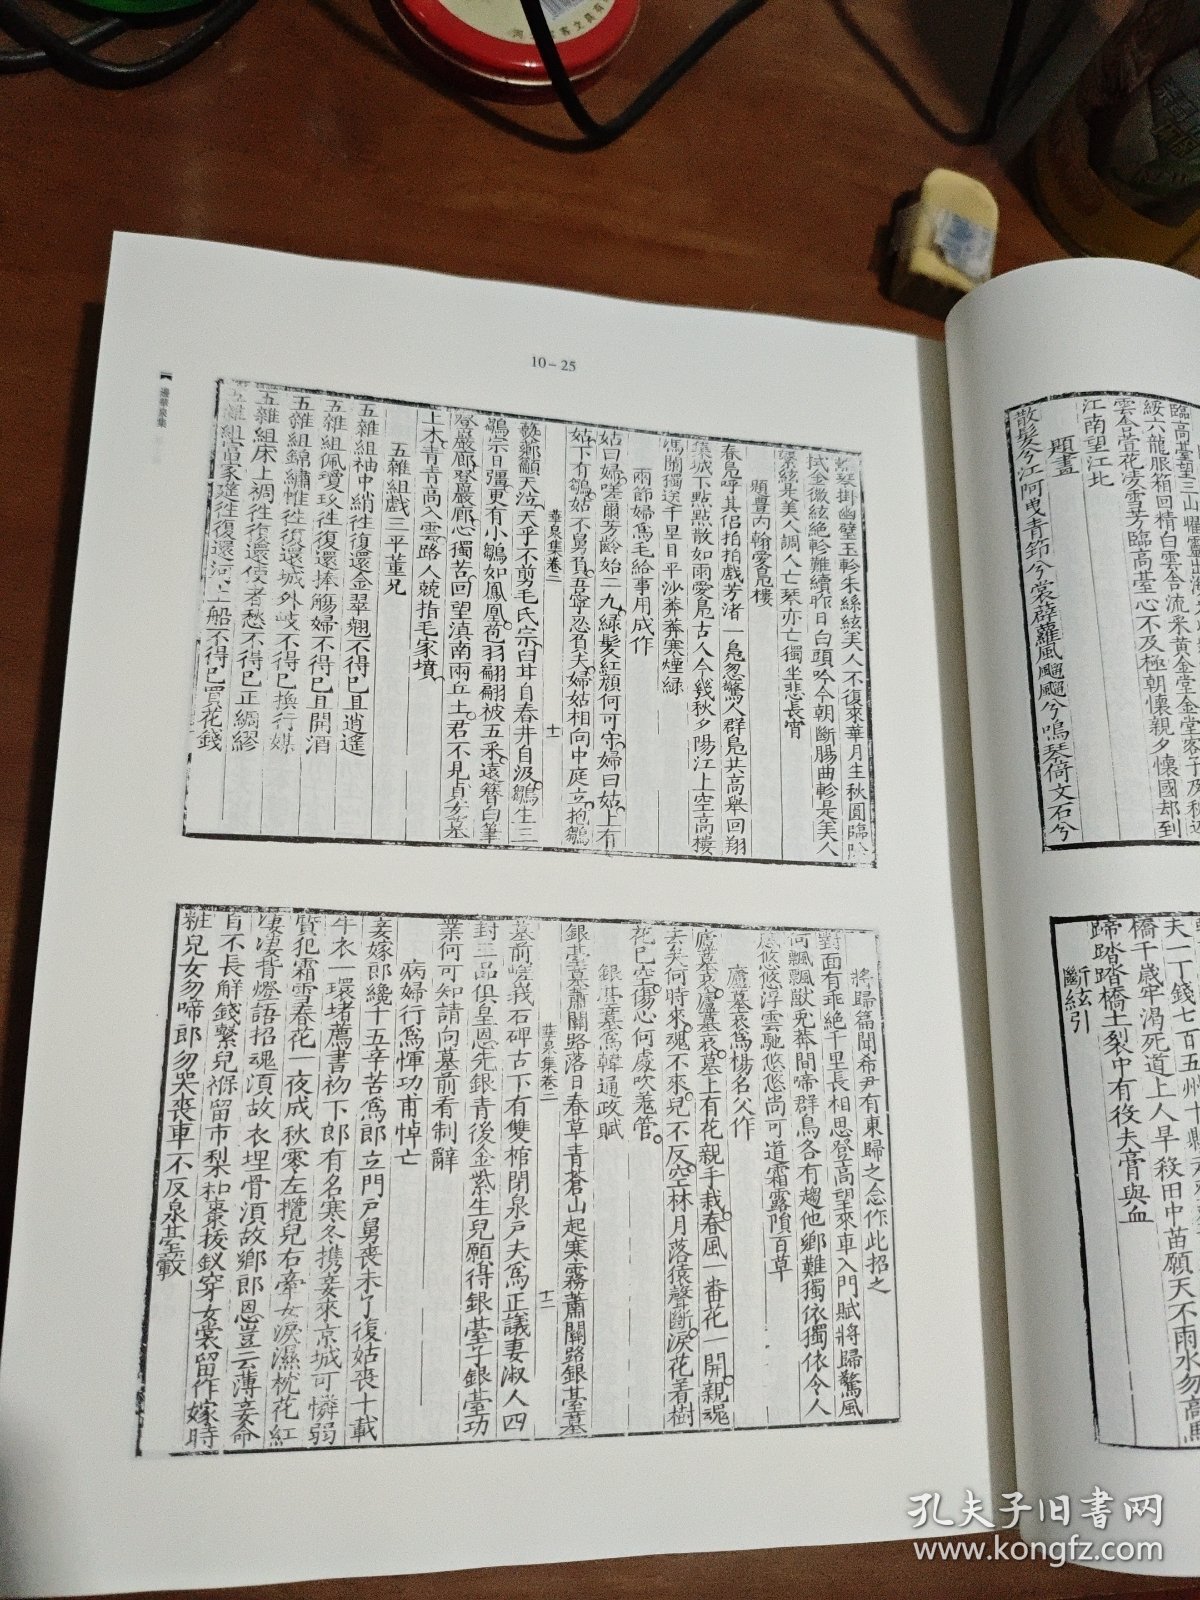 10-25
邊華泉集
琴掛幽壁玉軫朱絲絃美人不復來華月生秋圓臨
拭金徽絃絶軫難續昨日白頭吟今朝斷腸曲軫是美人
絃是美人調人亡琴亦亡獨坐悲長宵
題豐内翰愛鳧樓
春鳧呼其侣拍拍戲芳渚一鳧忽驚人群鳧共高舉回翔
集城下點點散如雨愛鳧古人今幾秋夕陽江上空高樓
憑闌獨送千里目平沙莾莾寒煙緑
兩節婦爲毛給事用成作
姑曰婦嗟爾芳齡始二九緑髮紅顔何可守婦曰姑上有
姑下有鶵姑不舅負吾寧忍負夫婦姑相向中庭立抱鶵
華泉集卷二
十一
籲天泣天乎不剪毛氏宗臼井自舂井自汲鶵生三
鶵宗日彊更有小鶵如鳳凰苞羽翩翩被五采遠簪白筆
登巖廊登巖廊心獨苦回望滇南兩丘土君不見貞女墓
上木青青高入雲路人兢指毛家墳
五雜組戲三平董兄
五雜組袖中綃徃復還金翠翹不得已且逍遙
五雜組佩瓊玖徃復還捧觴婦不得已且開酒
五雜組錦繡帷徃復還城外岐不得已換行媒
五雜組床上裯徃復還使者愁不得已正綢繆
五雜組富家徃復還河上船不得已買花錢
將歸篇聞希尹有東歸之念作此招之
對面有乖絶千里長相思登高望來車入門賦將歸驚風
何飄飄獸兎莾間啼群鳥各有趨他鄉難獨依獨依令人
悠悠浮雲馳悠悠尚可道霜露隕百草
廬墓哀爲楊名父作
廬墓哀廬墓哀墓上有花親手栽春風一番花一開親魂
去矣何時來魂不來兒不反空林月落猿聲斷淚花着樹
花已空傷心何處吹羗管
銀臺墓爲韓通政賦
銀臺墓蕭關路落日春草青蒼山起寒霧蕭關路銀臺墓
墓前嵯峩石碑古下有雙棺閉泉戸夫爲正議妻淑人四
華泉集卷二
十二
封三品俱皇恩先銀青後金紫生兒願得銀臺子銀臺功
業何可知請向墓前看制辭
病婦行爲惲功甫悼亡
妾嫁郎纔十五辛苦爲郎立門戸舅喪未了復姑喪十載
牛衣一環堵薦書初下郎有名寒冬携妾來京城可憐弱
質犯霜雪春花一夜成秋零左攬兒右牽女淚濕枕花紅
凄凄背燈語招魂須故衣埋骨須故鄉郎恩豈云薄妾命
自不長解錢繫兒褓留市梨和棗拔釵穿女裳留作嫁時
粧兒女勿啼郎勿哭喪車不反泉臺轂
散髮兮江阿曳青節兮裳薜蘿風颸颸兮鳴琴倚文石兮
題畫
江南望江北
雲含萱花凌雪芳臨高基心不及極朝懷親夕懷國却到
綏六龍服箱回精白雲含流采黄金堂金堂
斷絃引
蹄踏踏橋土裂中有役夫膏與血
橋千歲牢渴死道上人旱殺田中苗願天不雨水勿高
夫一丁錢七百五州十縣
孔夫子旧书网
www.kongfz.com